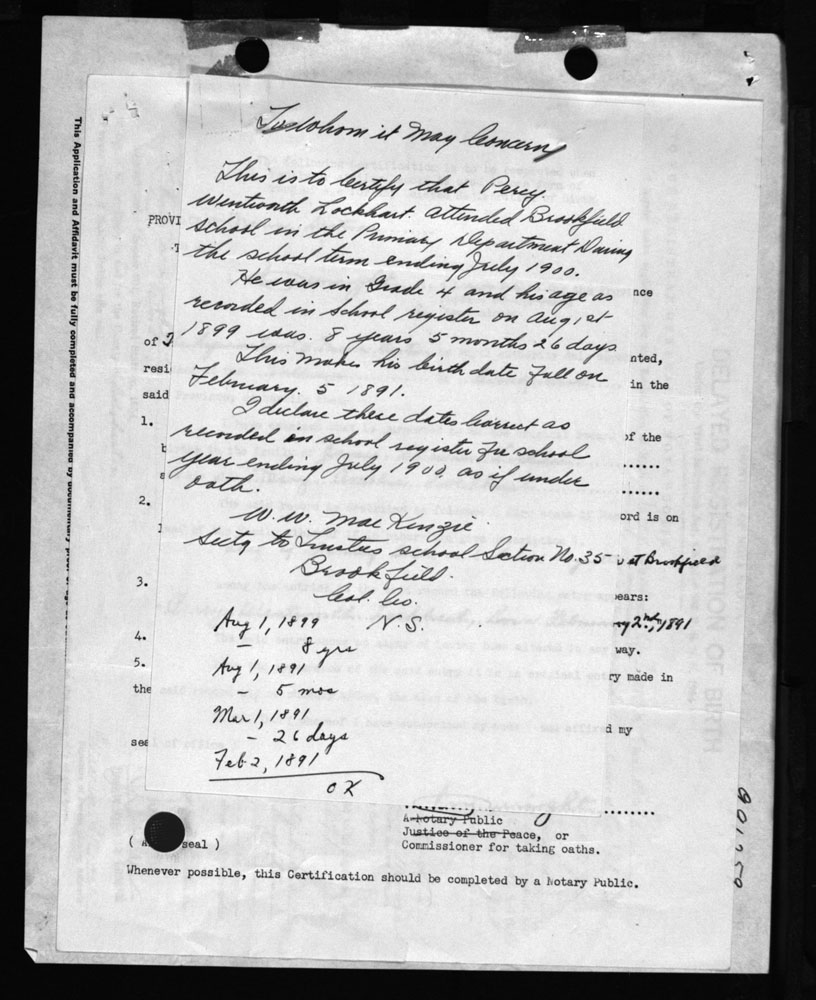 To whom it May Concern
This is to Certify that Percy
Wentworth Lockhart. attended Brookfield
School in the Primary Department During
the school term ending July 1900.
He was in Grade 4 and his age as
recorded in School register on Aug 1st
1899 was. 8 years 5 months 26 days
This makes his birth date fall on
February. 5 1891.
I declare these dates Correct as
recorded in school register for school
year ending July 1900 as if under
oath.
W. W. MacKenzie
Secty to Trustees school Section No. 35
at Brookfield
Brookfield.
Col. Co.
N.S.
Aug 1, 1899
- 8 yrs
Aug 1, 1891
- 5 mos
Mar 1, 1891
- 26 days
Feb 2, 1891
OK
This Application and Affidavit must be fully completed and accompanied by
PROVI
nce
of
nted,
resi
in the
said
1.
of the
2.
ord is on
3.
ears:
ry 2nd, 1891
4.
way.
5.
ry made in
the
d my
sea
A Notary Public
Justice of the Peace, or
Commissioner for taking oaths.
( seal )
Whenever possible, this Certification should be completed by a Notary Public.
DELAYED
OF BIRTH